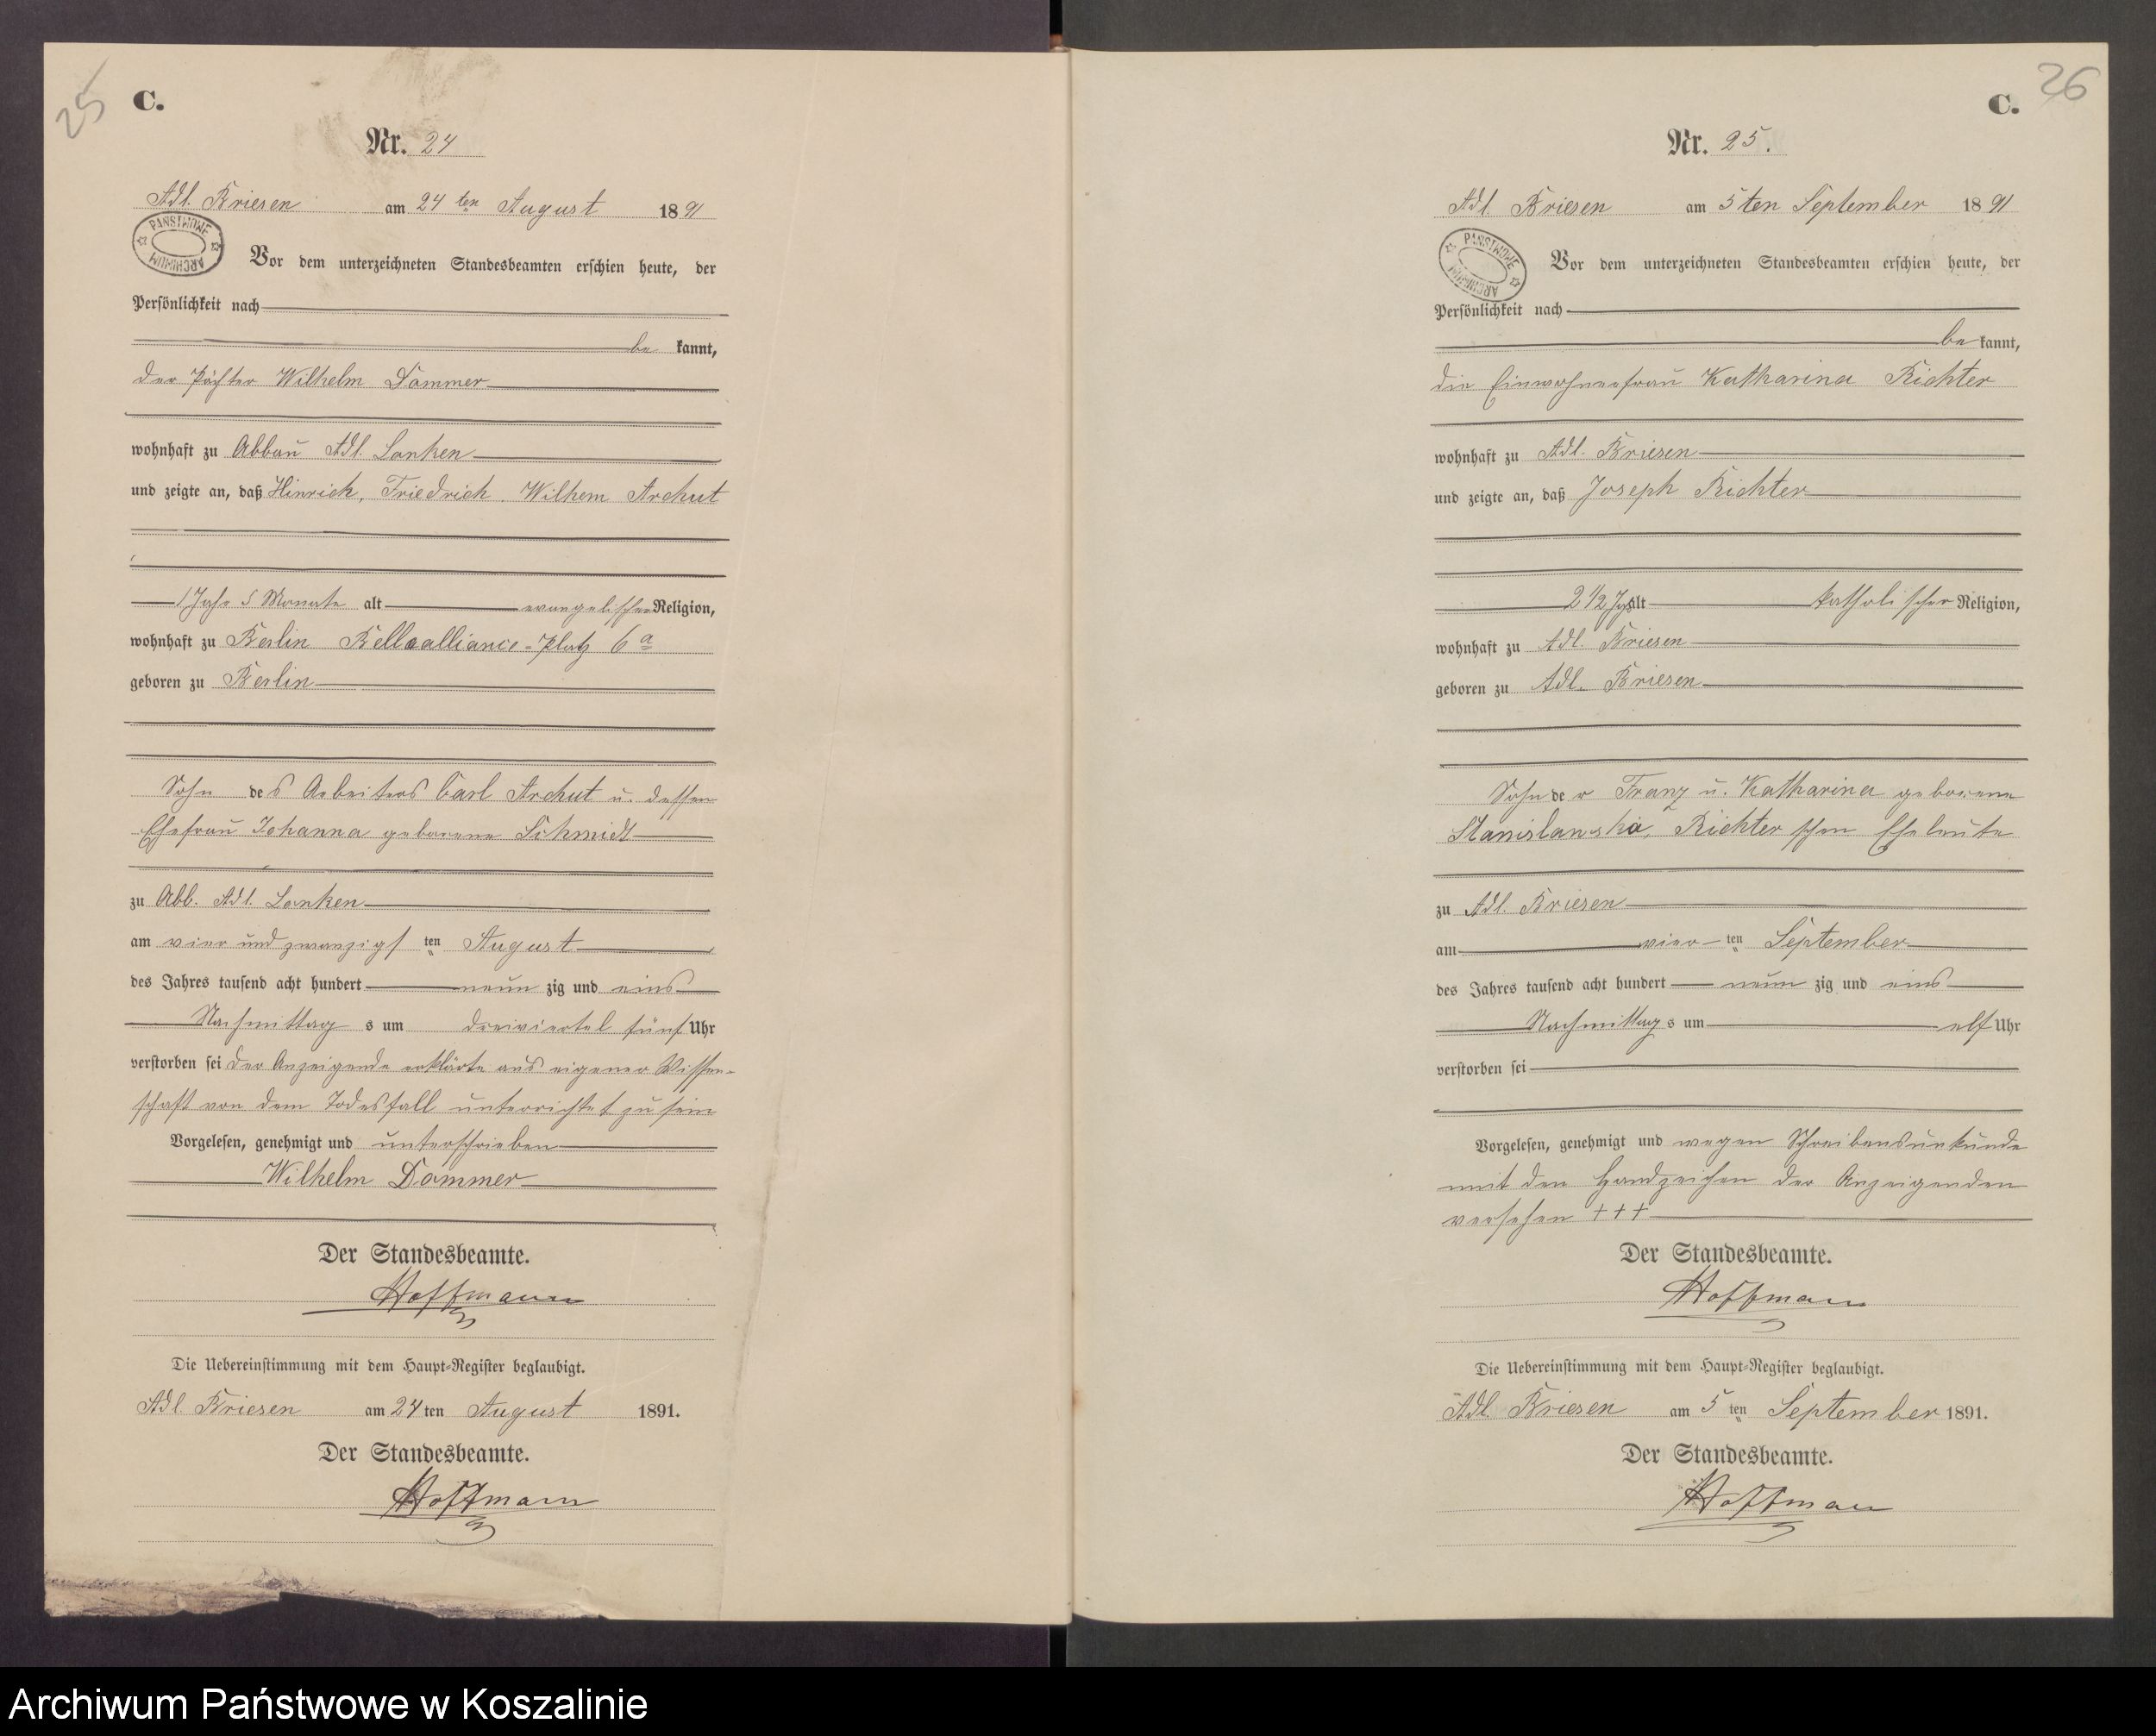 25
C.
Nr. 24
Adl. Briesen am 24 ten August 1891
PAŃSTWOWE ARCHIWUM
Vor dem unterzeichneten Standesbeamten erschien heute, der
Persönlichkeit nach
be kannt,
der Pächter Wilhelm Dammer
wohnhaft zu Abbau Adl. Lanken
und zeigte an, daß Hinrich, Friedrich, Wilhem Archut
1 Jahr 5 Monate alt evangelischer Religion,
wohnhaft zu Berlin Bellealliance-Platz 6 a
geboren zu Berlin
Sohn des Arbeiters Carl Archut u. dessen
Ehefrau Johanna geborene Schmidt
zu Abb. Adl. Lanken
am vier und zwanzigsten August
des Jahres tausend acht hundert neun zig und eins
Nachmittag s um dreiviertel fünf Uhr
verstorben sei der Anzeigende erklärte aus eigener Wissen-
schaft von dem Todesfall unterrichtet zu sein
Vorgelesen, genehmigt und unterschrieben
Wilhelm Dammer
Der Standesbeamte.
Hoffmann
Die Uebereinstimmung mit dem Haupt-Register beglaubigt.
Adl. Briesen am 24 ten August 1891.
Der Standesbeamte.
Hoffmann
26
C.
Nr. 25.
Adl. Briesen am 5 ten September 1891
PAŃSTWOWE ARCHIWUM
Vor dem unterzeichneten Standesbeamten erschien heute, der
Persönlichkeit nach
be kannt,
die Einwohnerfrau Katharina Richter
wohnhaft zu Adl. Briesen
und zeigte an, daß Joseph Richter
2 1/2 Jahr alt katholischer Religion,
wohnhaft zu Adl. Briesen
geboren zu Adl. Briesen
Sohn der Franz u. Katharina geborene
Stanislawska, Richter schen Eheleute
zu Adl. Briesen
am vier ten September
des Jahres tausend acht hundert neun zig und eins
Nachmittag s um elf Uhr
verstorben sei
Vorgelesen, genehmigt und wegen Schreibensunkunde
mit den Handzeichen der Anzeigenden
versehen +++
Der Standesbeamte.
Hoffmann
Die Uebereinstimmung mit dem Haupt-Register beglaubigt.
Adl. Briesen am 5 ten September 1891.
Der Standesbeamte.
Hoffmann
Archiwum Państwowe w Koszalinie